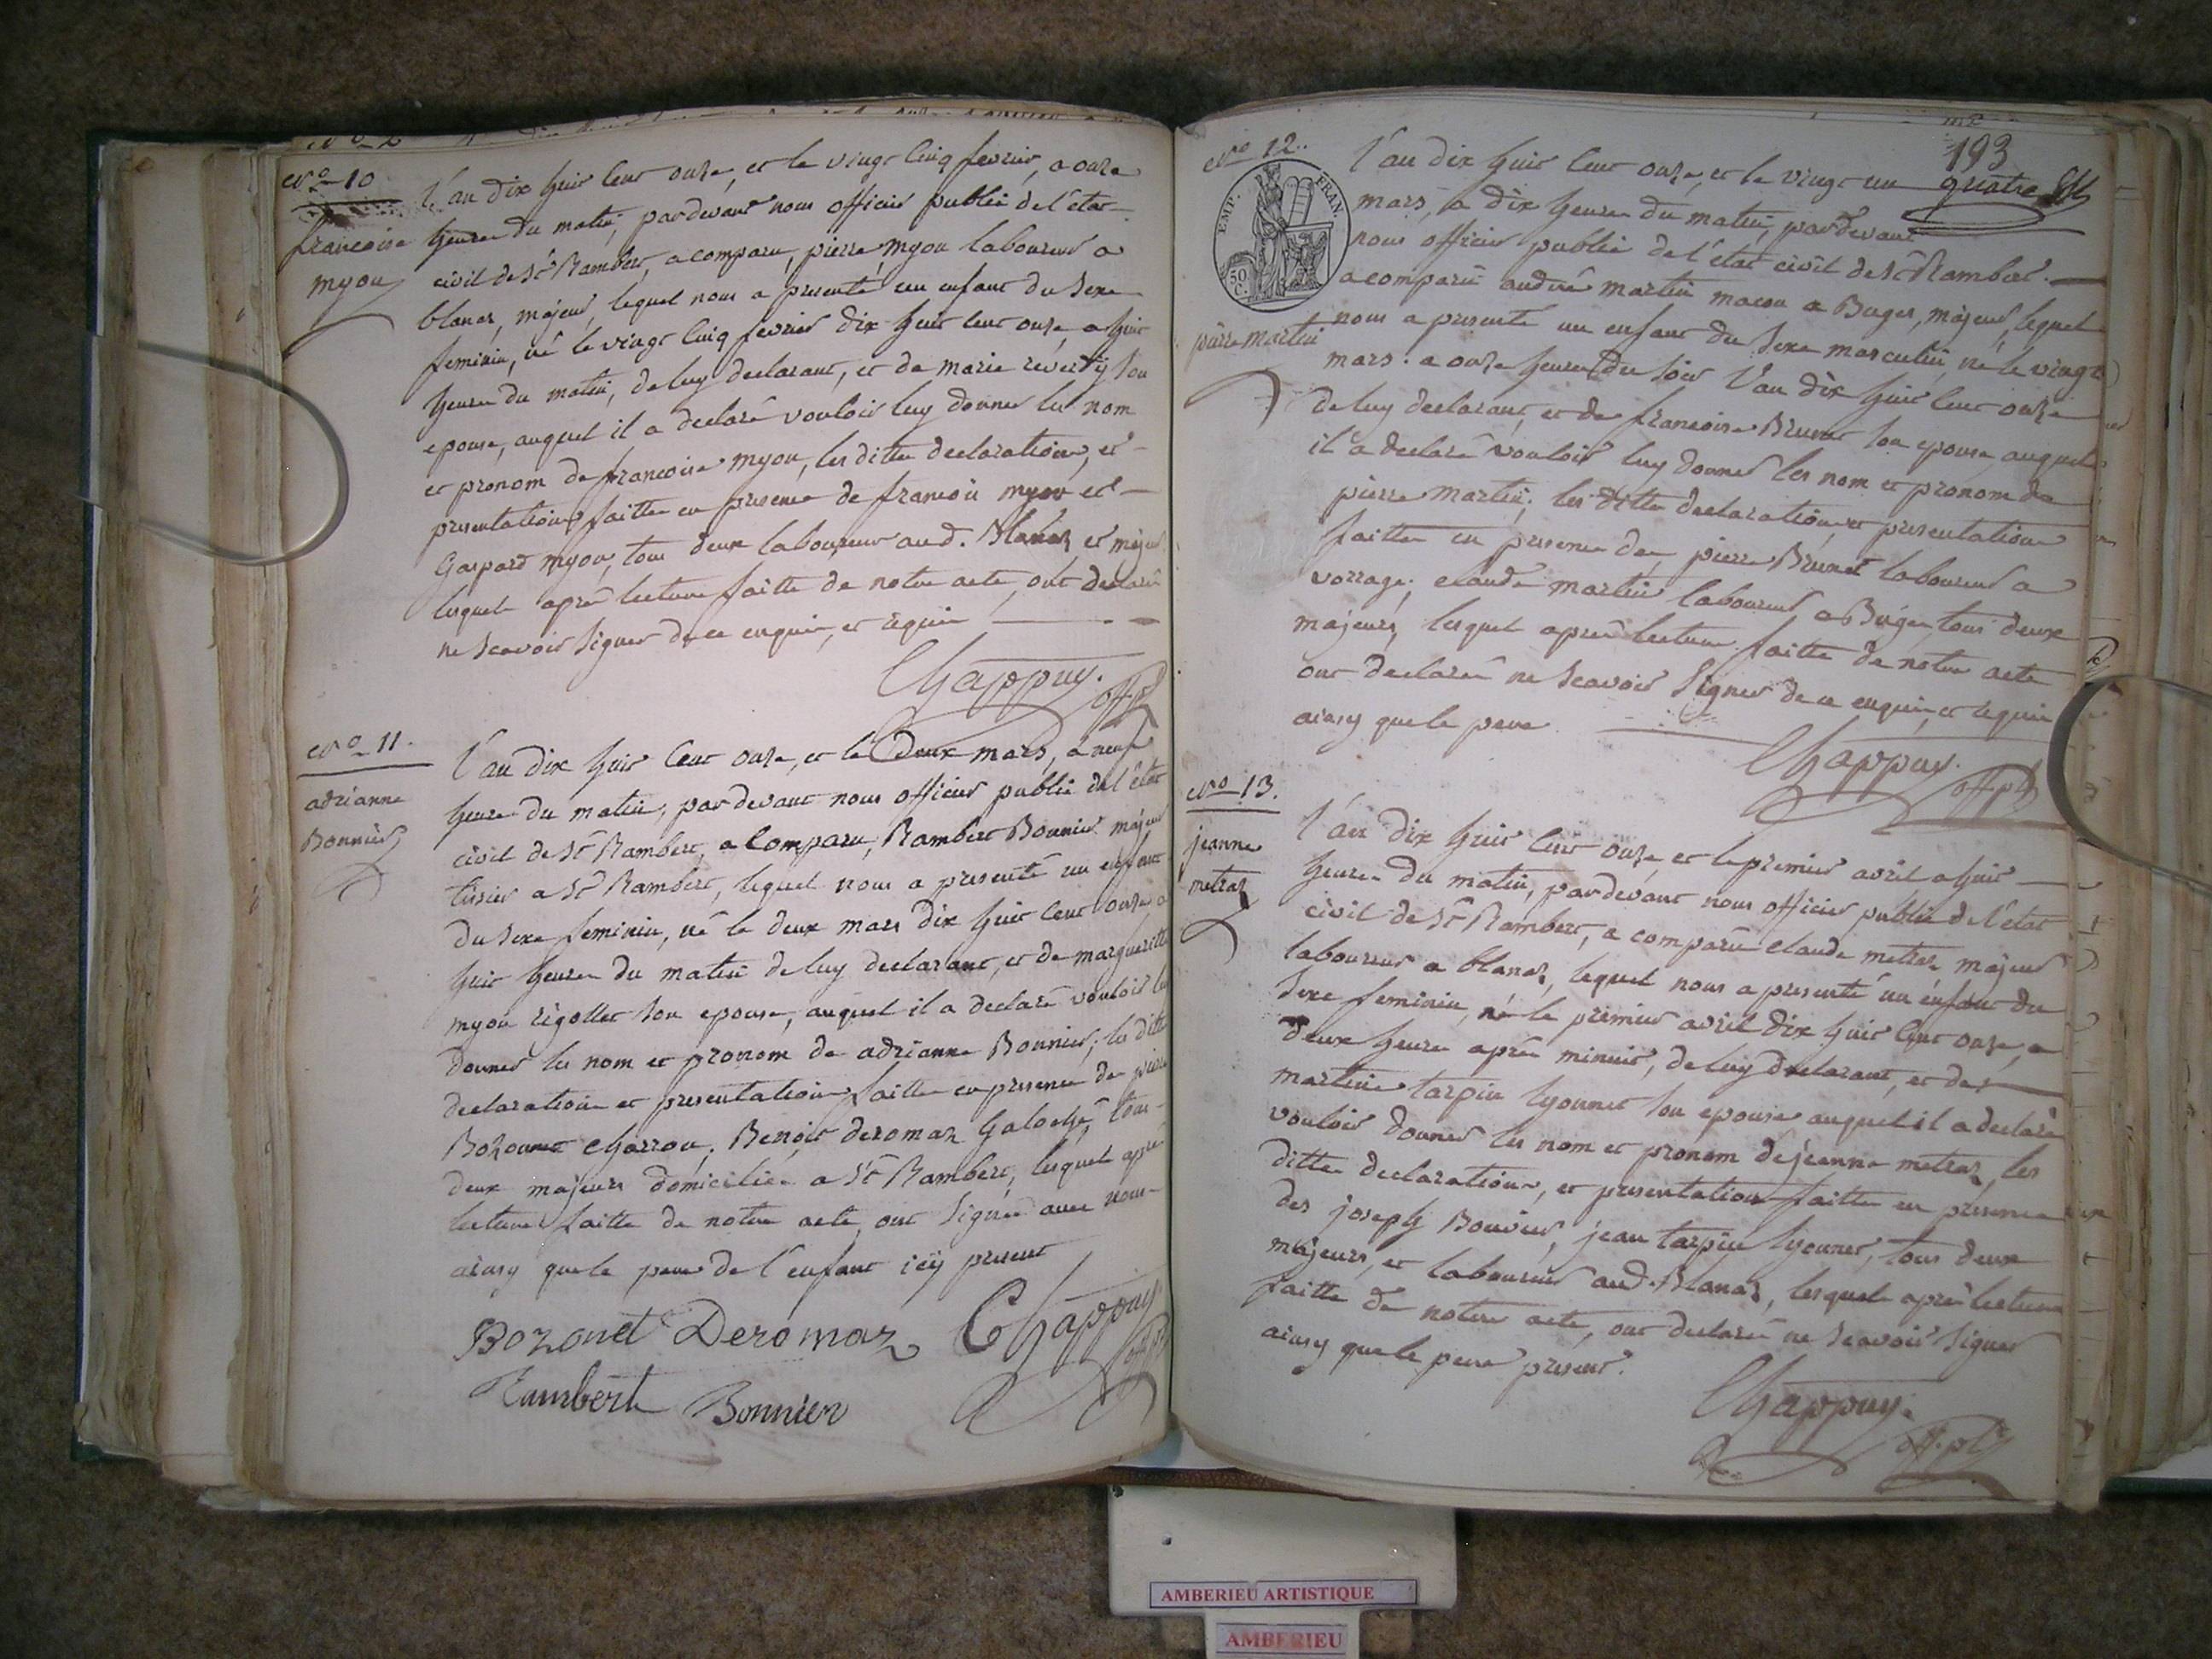 N° 10
francoise
myon
L'an dix huit cent onze, et le vingt cinq fevrier, a onze
heures du matin, pardevant nous officier public de l'état
civil de St Rambert, a comparu, pierre myon laboureur a
blanaz, majeur, lequel nous a presenté un enfant du sexe
feminin, né le vingt cinq fevrier dix huit cent onze, a huit
heures du matin, de luy declarant, et de marie reverdy son
epouse, auquel il a declaré vouloir luy donner les nom
et pronom de francoise myon, les dittes declarations, et
presentations faittes en presence de francois myon et
Gaspard myon, tous deux laboureurs aud. Blanaz et majeurs
lesquels après lecture faitte de notre acte, ont declaré
ne scavoir signer de ce enquis, et requis
Chappuy. off. p.
N° 11.
adrianne
Bonnier
L'an dix huit cent onze, et le deux mars, a neuf
heures du matin, pardevant nous officier public de l'état
civil de St Rambert, a comparu, Rambert Bonnier majeur
tissier a St Rambert, lequel nous a presenté un enfant
du sexe feminin, né le deux mars dix huit cent onze, a
huit heures du matin de luy declarant, et de margueritte
myon rigollet son epouse, auquel il a declaré vouloir luy
donner les nom et pronom de adrianne Bonnier; les dittes
declarations et presentations faittes en presence de pierre
Bozonet charron, Benoit deromaz Galoché, tous
deux majeurs domiciliés a St Rambert, lesquels après
lecture faitte de notre acte, ont signés avec nous
ainsy que le pere de l'enfant icÿ present
Bozonet Deromaz Chappuy off. p.
Rambert Bonnier
193
quatre
N° 12.
EMP. FRAN.
50 C.
pierre martin
L'an dix huit cent onze, et le vingt un
mars, a dix heures du matin, pardevant
nous officier public de l'état civil de St Rambert.
a comparu andré martin macon a Buges, majeur, lequel
nous a presenté un enfant du sexe masculin, né le vingt
mars. a onze heures du soir l'an dix huit cent onze
de luy declarant, et de francoise Brunet son epouse, auquel
il a declaré vouloir luy donner les nom et pronom de
pierre martin; les dittes declarations, et presentations
faittes en presence de, pierre Brunet laboureur a
vorrage; claude martin laboureur a Buges tous deux
majeurs, lesquels après lecture faitte de notre acte
ont declaré ne scavoir signer de ce enquis, et requis
ainsy que le pere
Chappuy. off. p.
N° 13.
jeanne
metraz
L'an dix huit cent onze, et le premier avril a huit
heures du matin, pardevant nous officier public de l'état
civil de St Rambert, a comparu claude metraz majeur
laboureur a blanaz, lequel nous a presenté un enfant du
sexe feminin, né le premier avril dix huit cent onze, a
deux heures après minuit, de luy declarant, et de
martine tarpin lyonnet son epouse auquel il a declaré
vouloir donner les nom et pronom de jeanne metraz, les
dittes declarations, et presentations faittes en presence
des joseph Bouvier, jean tarpin lyonnet, tous deux
majeurs, et laboureurs aud. Blanaz, lesquels après lecture
faitte de notre acte, ont declaré ne scavoir signer
ainsy que le pere present.
Chappuy. off. p.
AMBERIEU ARTISTIQUE
AMBERIEU